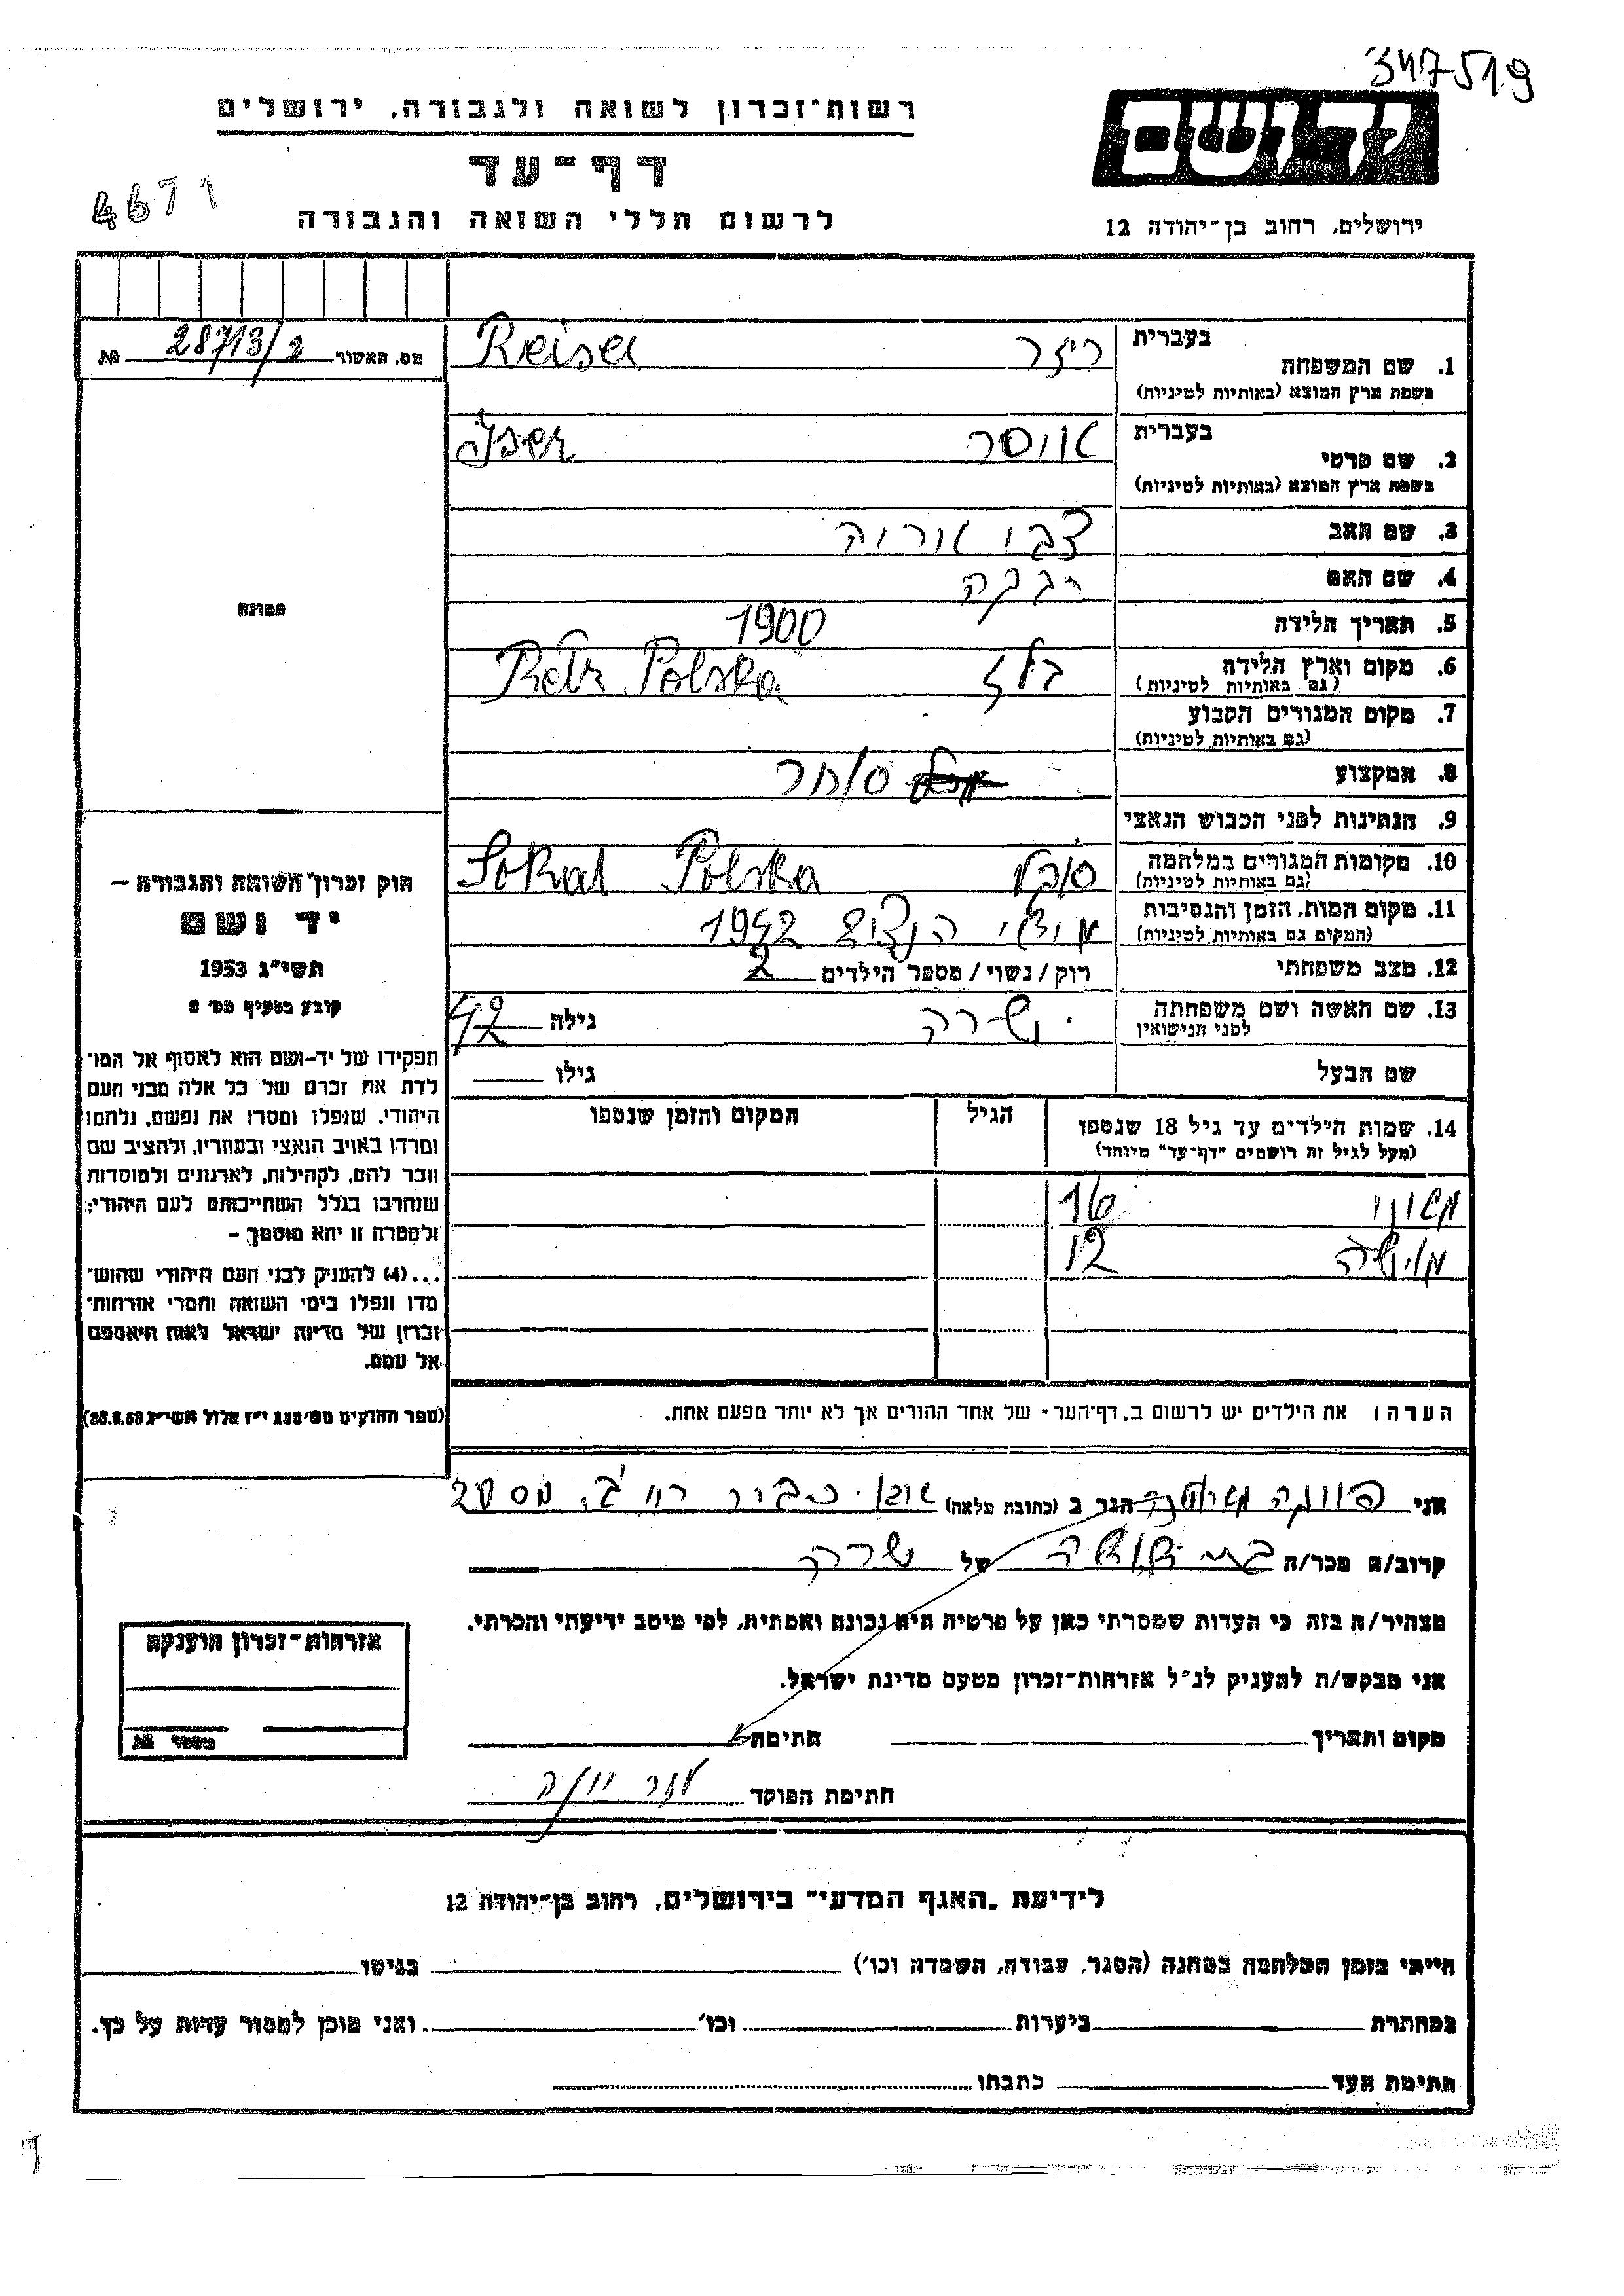 347519
רשות־זכרון לשואה ולגבורה, ירושלים
יד ושם
דף־עד
4671
לרשום חללי השואה והגבורה
ירושלים, רחוב בן־יהודה 12
מס. האשור 28713/2 №
בעברית
1. שם המשפחה
בשפת ארץ המוצא (באותיות לטיניות)
ריזר Reiser
בעברית
2. שם פרטי
בשפת ארץ המוצא (באותיות לטיניות)
איסר Jser
3. שם האב צבי אריה
4. שם האם רבקה
5. תאריך הלידה 1900
6. מקום וארץ הלידה
(גם באותיות לטיניות)
בלז Polska
7. מקום המגורים הקבוע
(גם באותיות לטיניות)
8. המקצוע סוחר
9. הנתינות לפני הכבוש הנאצי
10. מקומות המגורים במלחמה
(גם באותיות לטיניות)
סוקל Sokal Polska
11. מקום המות, הזמן והנסיבות
(המקום גם באותיות לטיניות)
1942
12. מצב משפחתי רוק / נשוי / מספר הילדים 2
13. שם האשה ושם משפחתה
לפני הנישואין
שרה גילה 42
שם הבעל גילו
14. שמות הילדים עד גיל 18 שנספו
(מעל לגיל זה רושמים "דף־עד" מיוחד)
הגיל
המקום והזמן שנספו
16
12
הערה: את הילדים יש לרשום ב„דף־העד" של אחד ההורים אך לא יותר מפעם אחת.
תמונה
חוק זכרון השואה והגבורה –
יד ושם
תשי"ג 1953
קובע בסעיף מס' 2
תפקידו של יד־ושם הוא לאסוף אל המו־
לדת את זכרם של כל אלה מבני העם
היהודי, שנפלו ומסרו את נפשם, נלחמו
ומרדו באויב הנאצי ובעוזריו, ולהציב שם
וזכר להם, לקהילות, לארגונים ולמוסדות
שנחרבו בגלל השתייכותם לעם היהודי;
ולמטרה זו יהא מוסמך –
...(4) להעניק לבני העם היהודי שהוש־
מדו ונפלו בימי השואה והמרי אזרחות־
זכרון של מדינת ישראל לאות היאספם
אל עמם.
(ספר החוקים מס' 132 י"ז אלול תשי"ג 28.8.53)
אני הגר ב (כתובת מלאה)
קרוב/ה מכר/ה של שרה
מצהיר/ה בזה כי העדות שמסרתי כאן על פרטיה היא נכונה ואמתית, לפי מיטב ידיעתי והכרתי.
אני מבקש/ת להעניק לנ"ל אזרחות־זכרון מטעם מדינת ישראל.
מקום ותאריך חתימה
חתימת הפוקד
אזרחות־זכרון הוענקה
מספר №
לידיעת „האגף המדעי" בירושלים, רחוב בן־יהודה 12
הייתי בזמן המלחמה במחנה (הסגר, עבודה, השמדה וכו') בגיטו
במחתרת ביערות וכו' ואני מוכן למסור עדות על כך.
חתימת העד כתבתו